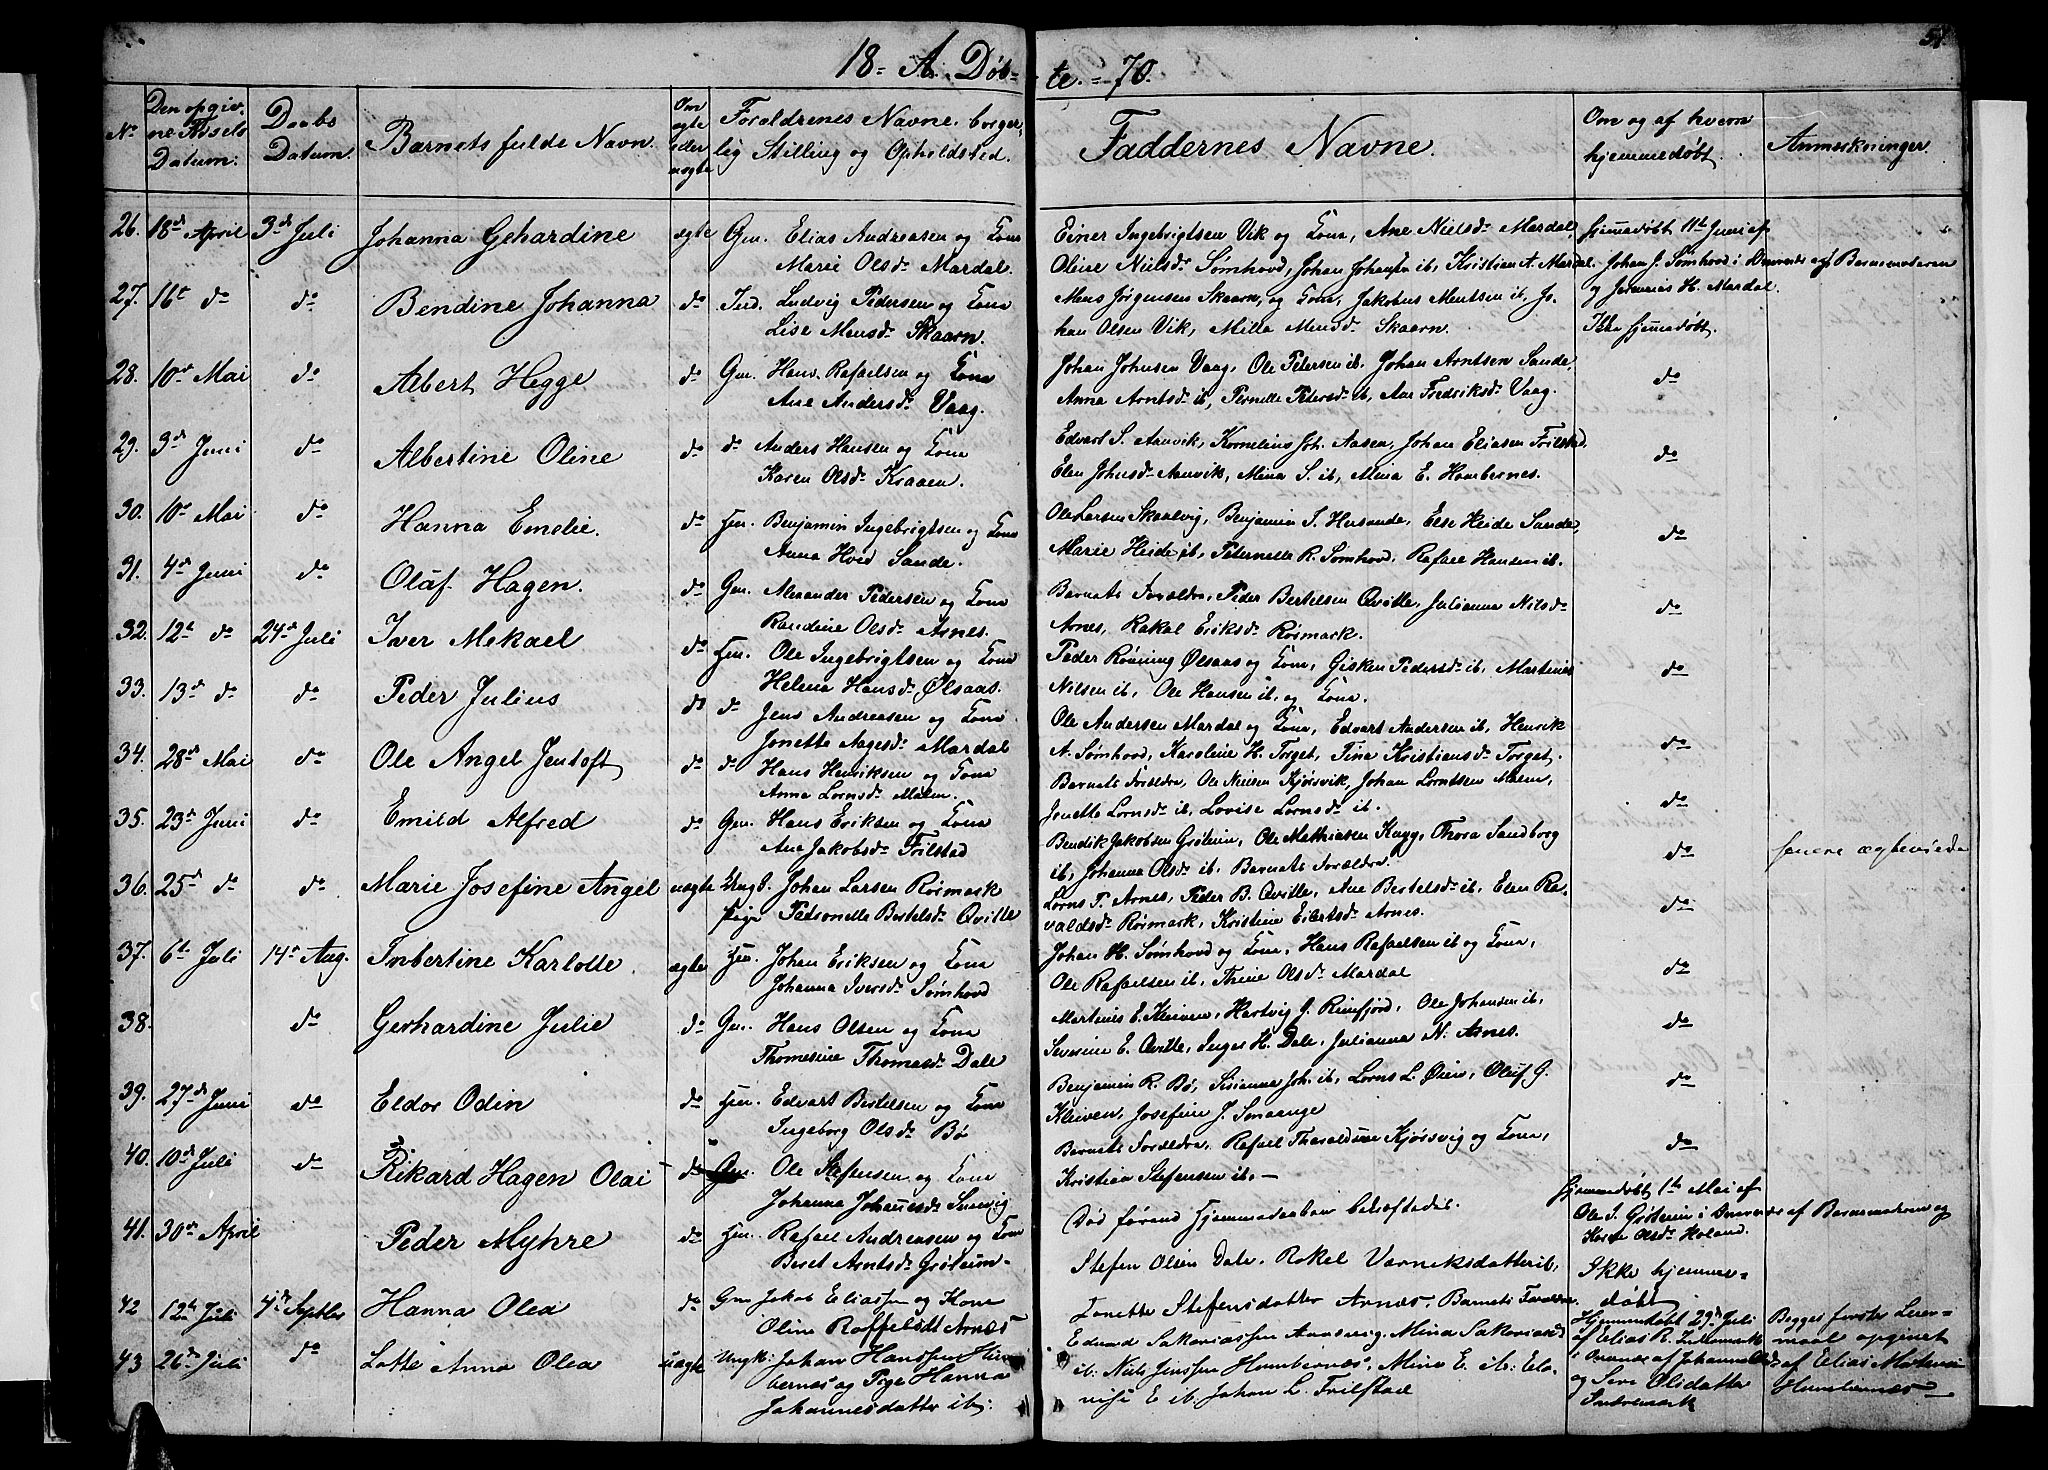 18 = A. Døb- te. = 70.
No
Den opgiv.
ne Fødsels
Datum:
Daabs
Datum.
Barnets fulde Navn.
Om
ægte
eller
uægte
Forældrenes Navne, borger-
lig Stilling og Opholdsted.
Faddernes Navne.
Om og af hvem
hjemmedøbt.
Anmærkninger.
26. 18de April 3de Juli Johanna Gehardine ægte Gm. Elias Andreasen og Kone
Marie Olsdr Mardal.
Einer Ingebrigtsen Vik og Kone, Ane Nielsdr Mardal,
Oline Nielsdr Sømhovd, Johan Johansen ib, Kristian A. Mardal.
Hjemmedøbt 11te Juni af
Johan J. Sømhovd i Overvær af Barnemoderen
og Jeremias H. Mardal.
27. 16t do do Bendine Johanna do Ind. Ludvig Pedersen og Kone
Lise Monsdr Skaarn.
Mons Jørgensen Skaarn, og Kone, Jakobus Mentsen ib, Jo-
han Olsen Vik, Milla Monsdr Skaarn.
Ikke hjemmedøbt.
28. 10de Mai do Albert Hegge do Gm. Hans Rafaelsen og Kone
Ane Andersdr Vaag.
Johan Johnsen Vaag, Ole Petersen ib, Johan Arntsen Sande,
Anna Arntsdr ib, Pernelle Petersdr ib, Ane Fredriksdr Vaag.
do
29. 3de Juni do Albertine Oline do do Anders Hansen og Kone
Karen Olsdr Kraaen.
Edvart S. Aarvik, Kornelius Joh. Aasen, Johan Eliasen Trilstad.
Elen Johnsdr Aarvik, Mina S. ib, Mina E. Humbernes.
do
30. 10de Mai do Hanna Emelie. do Hm. Benjamin Ingebrigtsen og Kone
Anna Hveid Sande.
Ole Larsen Skaalvig, Benjamin I. Horsande, Else Heide Sande,
Marie Heide ib, Peternelle R. Sømhovd, Rafael Hansen ib.
do
31. 4de Juni do Oluf Hagen. do Gm. Alexander Pedersen og Kone
Randine Olsdr Arnes.
Barnets Forældre, Peder Bertelsen Qville, Julianna Nilsdr
Arnes, Rakal Eriksdr Rørmark.
do
32. 12te do 24de Juli Iver Mekael do Hm. Ole Ingebrigtsen og Kone
Helena Hansdr Ølsaas.
Peder Rønning Ølsaas og Kone, Gisken Pedersdr ib, Martinus
Nilsen ib, Ole Hansen ib, og Kone.
do
33. 13de do do Peder Julius do do Jens Andreasen og Kone
Jonette Aagesdr Mardal
Ole Andersen Mardal og Kone, Edvart Andersen ib, Henrik
A. Sømhovd, Karoline H. Torget, Tina Kristiansdr Torget.
do
34. 28de Mai do Ole Angel Jentoft do do Hans Henriksen og Kone
Anna Lornsdr Malm.
Barnets Forældre, Ole Nielsen Kjørsvik, Johan Lorntsen Malm,
Jonette Lornsdr ib, Lovise Lornsdr ib.
do
35. 23de Juni do Emild Alfred do Gm. Hans Eriksen og Kone
Ane Jakobsdr Trilstad
Bendik Jakobsen Grøteim, Ole Mathiasen Kugg, Thora Sandborg
ib, Johanna Olsdr ib, Barnets Forældre.
do
36. 25de do do Marie Josefine Angel uægte Ungk. Johan Larsen Rørmark
Pige Petronelle Bertelsdr Qville
Lorns P. Arnes, Peder B. Qville, Ane Bertelsdr ib, Elen Ra-
valdsdr Rørmark, Kristine Eilertsdr Arnes.
do
senere ægteviede
37. 6te Juli 14de Aug. Inbertine Karlotte. ægte Hm. Johan Eriksen og Kone
Johanna Iversdr Sømhovd
Johan H. Sømhovd og Kone, Hans Rafaelsen ib og Kone,
Ole Rafaelsen ib, Trine Olsdr Mardal
do
38. do Gerhardine Julie do Gm. Hans Olsen og Kone
Thomesine Thomasdr Dale
Martinus E. Kleiven, Hartvig G. Rinfjord, Ole Johansen ib,
Severine E. Qville, Inger H. Dale, Julianna N. Arnes.
do
39. 27de Juni do Eldor Odin do Hm. Edvart Bertelsen og Kone
Ingeborg Olsdr Bø
Benjamin R. Bø, Susanna Joh. ib, Lorns L. Øien, Oluf G.
Kleiven, Josefine J. Smaange
do
40. 10de Juli do Rikard Hagen Olai do Gm. Ole Stefensen og Kone
Johanna Johannesdr
Barnets Forældre, Rafael Tharaldsen Kjørsvig og Kone,
Kristian Stefensen ib. —
do
41. 30de April Peder Myhre do Hm. Rafael Andreasen og Kone
Beret Arntsdr Grøteim -
Død førend Hjemmedaaben bekræftedes.
Hjemmedøbt 1te Mai af
Ole I. Grøteim i Overvær af Barnemoderen og
Olsdr Holand.
42 12te Juli 4de Septbr Hanna Olea do Gm Jakob Eliassen og Kone
Oline Raffelsdt Arnæs
Stefen Olsen Dale, Rakel Varniksdatter ib,
Lonette Stefensdatter Arnæs, Barnets Forældre.
Ikke hjemme-
døbt
43 26de Juli do Lotte Anna Olea uægte Ungk: Johan Hanssen Hum
bernæs og Pige Hanna
Johannesdatter ib:
Edvard Sakariassen Aarsvig, Mina Sakariasd
ib: Niels Jenssen Humbernæs, Mina E. ib: Elo-
nise E ib, Johan L. Trilstad
Hjemmedøbt 29de Juli
af Elias R. Indremark
i Overvær af
og Olsdatter
Indremark
Begges første Leier-
maal opgivet
af Elias Mortensen
Humbernæs